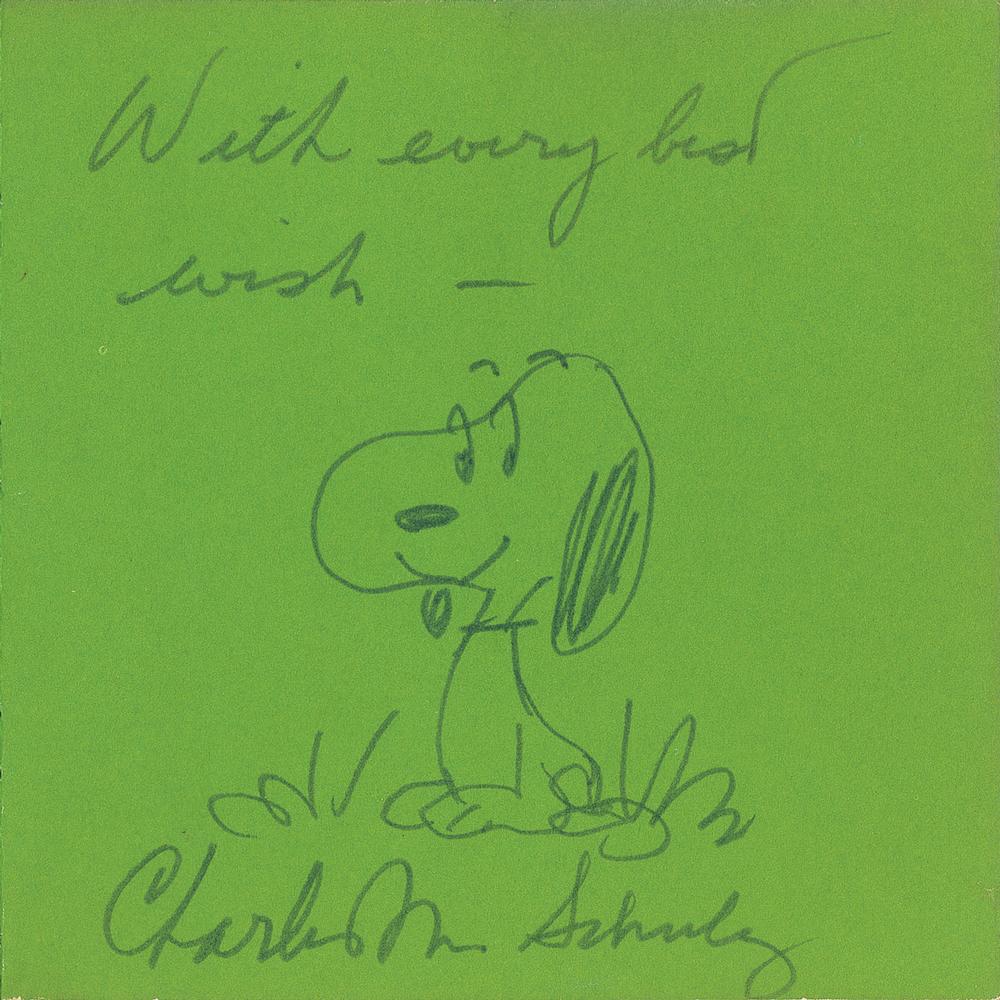 With every best
wish —
Charles M Schulz